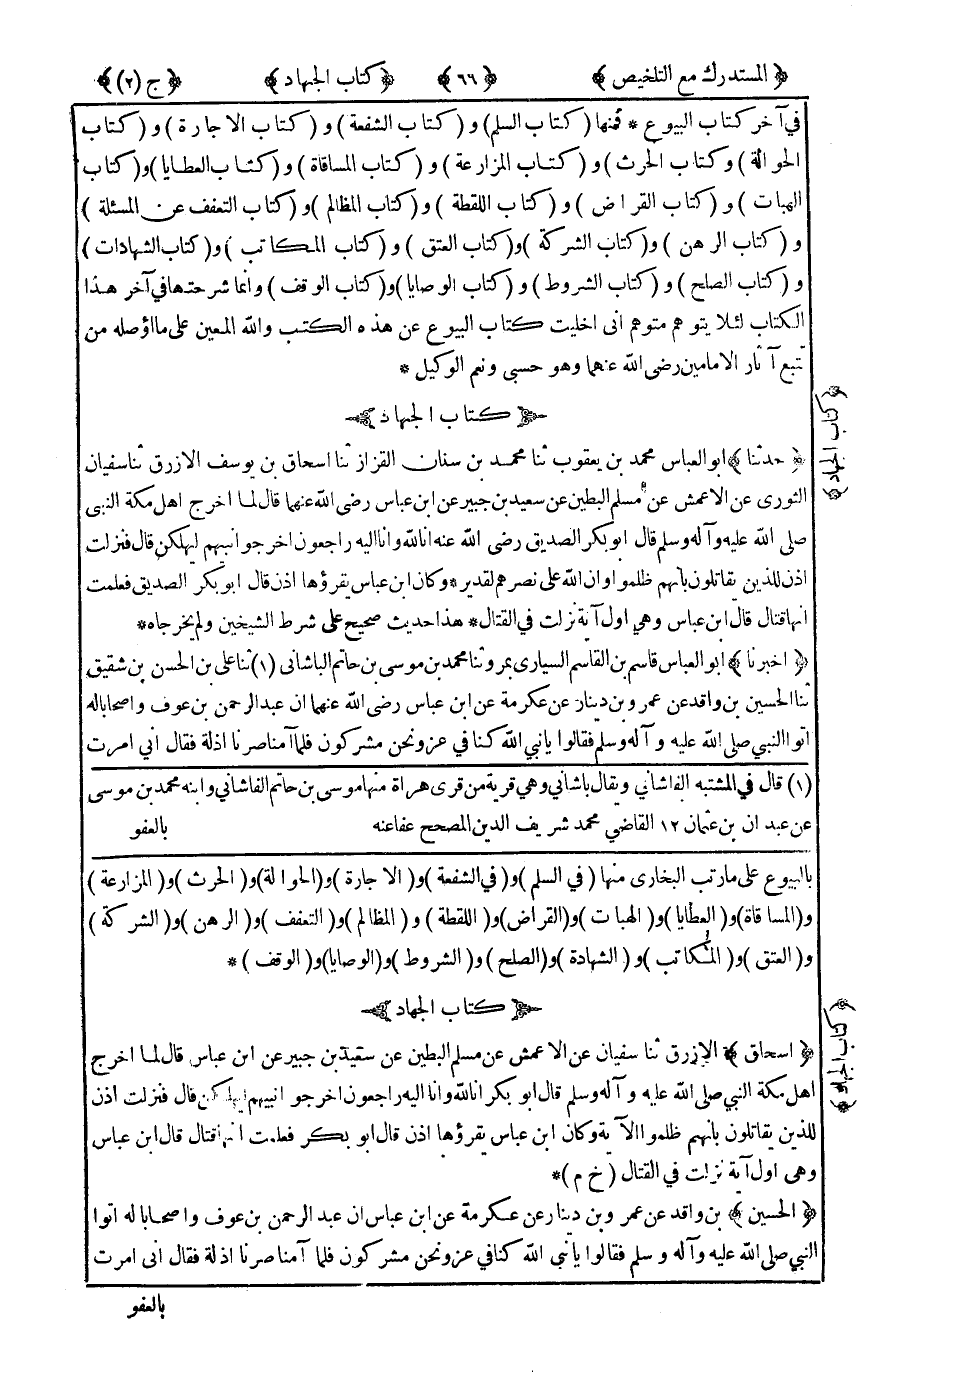 ﴿ المستدرك مع التلخيص ﴾ ﴿ ٦٦ ﴾ ﴿ كتاب الجهاد ﴾ ﴿ ج (٢) ﴾
في آخر كتاب البيوع * فمنها (كتاب السلم) و (كتاب الشفعة) و (كتاب الاجارة) و (كتاب
الحوالة) و كتاب الحرث) و (كتاب المزارعة) و (كتاب المساقاة) و (كتاب العطايا) و(كتاب
الهبات) و (كتاب القراض) و (كتاب اللقطة) و (كتاب المظالم) و (كتاب التعفف عن المسئلة)
و (كتاب الرهن) و(كتاب الشركة) و(كتاب العتق) و (كتاب المكاتب) و( كتاب الشهادات)
و (كتاب الصلح) و (كتاب الشروط) و (كتاب الوصايا) و(كتاب الوقف) وانما شرحتها في آخر هذا
الكتاب لئلا يتوهم متوهم انى اخليت كتاب البيوع عن هذه الكتب والله المعين على ما اؤصله من
تتبع آثار الامامين رضى الله عنهما وهو حسبى ونعم الوكيل *
كتاب الجهاد
﴿ حدثنا ﴾ ابو العباس محمد بن يعقوب ثنا محمد بن سنان القزاز ثنا اسحاق بن يوسف الازرق ثنا سفيان
الثورى عن الاعمش عن مسلم البطين عن سعيد بن جبير عن ابن عباس رضى الله عنهما قال لما اخرج اهل مكة النبى
صلى الله عليه وآله وسلم قال ابوبكر الصديق رضى الله عنه انا لله وانا اليه راجعون اخرجوا نبيهم ليهلكن قال فنزلت
اذن للذين يقاتلون بأنهم ظلموا وان الله على نصرهم لقدير * وكان ابن عباس يقرؤها اذن قال ابوبكر الصديق فعلمت
انها قتال قال ابن عباس وهي اول آية نزلت في القتال * هذا حديث صحيح على شرط الشيخين ولم يخرجاه *
﴿ اخبرنا ﴾ ابو العباس قاسم بن القاسم السيارى بمرو ثنا محمد بن موسى بن حاتم الباشانى (١) ثنا على بن الحسن بن شقيق
ثنا الحسين بن واقد عن عمرو بن دينار عن عكرمة عن ابن عباس رضى الله عنهما ان عبد الرحمن بن عوف واصحابا له
اتوا النبي صلى الله عليه وآله وسلم فقالوا يا نبي الله كنا في عز ونحن مشركون فلما آمنا صرنا اذلة فقال انى امرت
(١) قال في المشتبه الفاشاني ويقال باشاني وهي قرية من قرى هراة منها موسى بن حاتم الفاشاني وابنه محمد بن موسى
عن عبدان بن عثمان ١٢ القاضي محمد شريف الدين المصحح عفا عنه بالعفو
بالبيوع على مارتب البخارى منها (في السلم) و(في الشفعة) و( الاجارة) و(الحوالة) و( الحرث) و( المزارعة)
و(المساقاة) و( العطايا) و( الهبات) و(القراض) و( اللقطة) و( المظالم) و( التعفف) و( الرهن) و( الشركة)
و( العتق) و( المكاتب) و( الشهادة) و(الصلح) و( الشروط) و(الوصايا) و( الوقف) *
كتاب الجهاد
﴿ اسحاق ﴾ الازرق ثنا سفيان عن الاعمش عن مسلم البطين عن سعيد بن جبير عن ابن عباس قال لما اخرج
اهل مكة النبي صلى الله عليه وآله وسلم قال ابوبكر انا لله وانا اليه راجعون اخرجوا نبيهم ليهلكن قال فنزلت اذن
للذين يقاتلون بأنهم ظلموا الآية وكان ابن عباس يقرؤها اذن قال ابوبكر فعلمت انها قتال قال ابن عباس
وهى اول آية نزلت في القتال (خ م) *
﴿ الحسين ﴾ بن واقد عن عمرو بن دينار عن عكرمة عن ابن عباس ان عبد الرحمن بن عوف واصحابا له اتوا
النبي صلى الله عليه وآله وسلم فقالوا يا نبي الله كنا في عز ونحن مشركون فلما آمنا صرنا اذلة فقال انى امرت
بالعفو
﴿ كتاب الجهاد ﴾
﴿ كتاب الجهاد ﴾